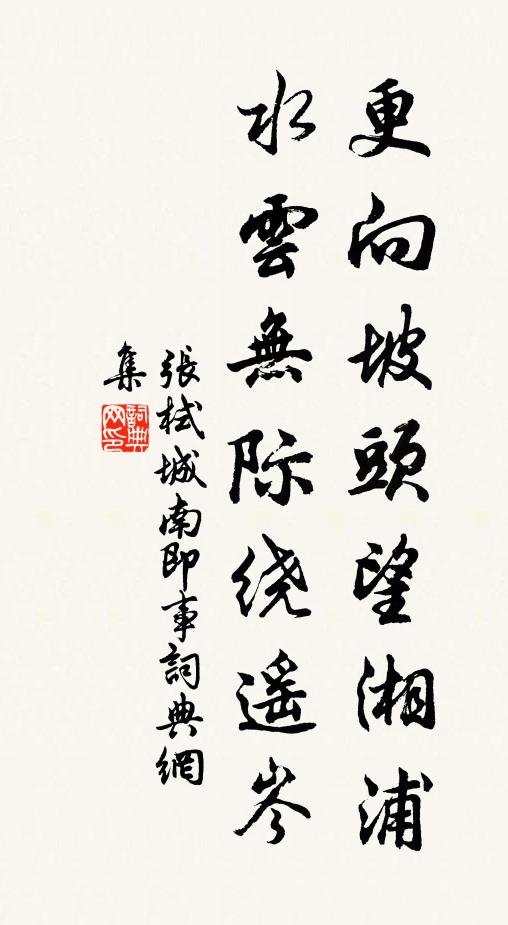 更向坡頭望湘浦
水雲無际绕遥岑
張栻城南即事詞典網
集
詞典
网印